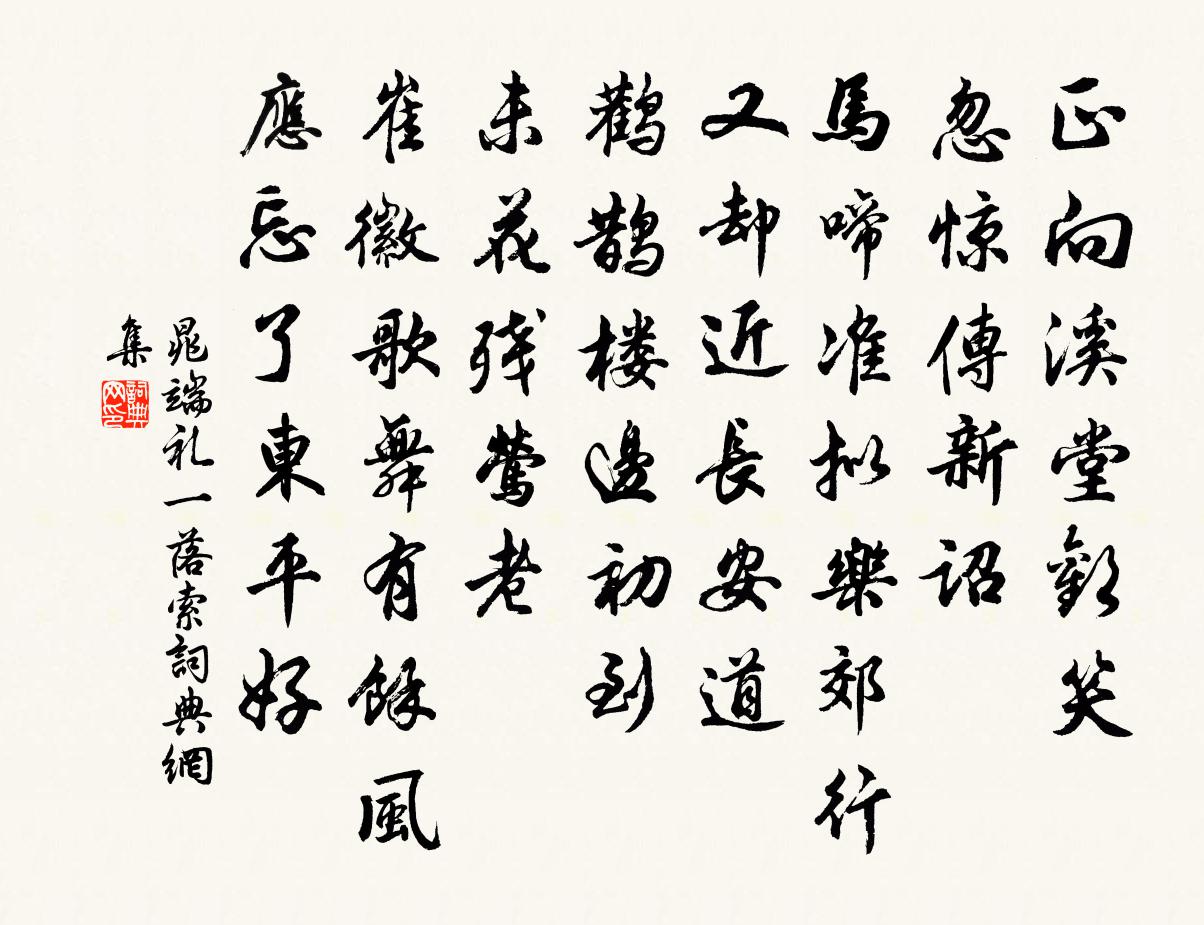 正向溪堂歡笑
忽惊傳新詔
馬啼准拟樂郊行
又却近長安道
鸛鵲楼邊初到
未花残鶯老
崔徽歌舞有餘風
應忘了東平好
晁端礼一落索詞典網
集
詞典网印